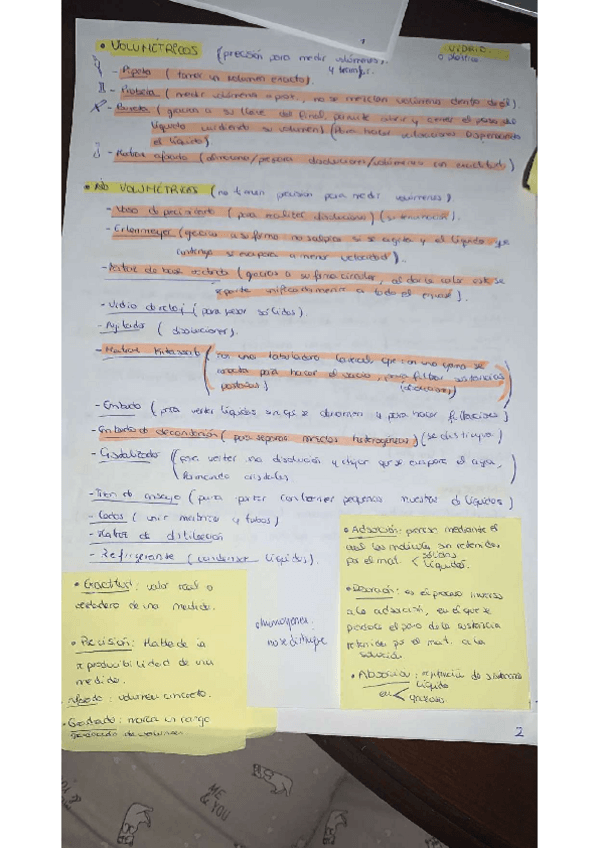 • VOLUMÉTRICOS (precisión para medir volúmenes)
y transf.
VIDRIO
o plástico
- Pipeta (tomar un volumen exacto).
- Probeta (medir volúmenes aprox., no se mezclan volúmenes dentro de él).
- Bureta (gracias a su llave del final, permite abrir y cerrar el paso de
líquido midiendo su volumen) (Para hacer valoraciones
el líquido)
- Matraz aforado (disoluciones con exactitud)
• NO VOLUMÉTRICOS (no tienen precisión para medir volúmenes)
- Vaso de precipitado (para realizar disoluciones)
- Erlenmeyer (gracias a su forma no salpica si se agita y el líquido que
contenga se evapora a menor velocidad).
- Matraz de base redonda (gracias a su forma circular, al darle calor este se
reparte unificadamente a todo el envase).
- Vidrio de reloj (para pesar sólidos).
- Agitador (disoluciones).
- Matraz Kitasato
para hacer el vacío, para filtrar sustancias
pastosas)
- Embudo (para verter líquidos sin que se derramen y para hacer filtraciones)
- Embudo de decantación (para separar mezclas heterogéneas) (se distingue)
- Cristalizador (para verter una disolución y dejar que se evapore el agua,
formando cristales)
- Tubo de ensayo (para contener pequeñas muestras de líquidos)
- Codos (unir matraces y tubos)
- Matraz de destilación
- Refrigerante (condensar líquidos).
• Exactitud: valor real o
verdadero de una medida.
• Precisión: Habla de la
reproducibilidad de una
medida.
• Aforado: volumen concreto.
• Graduado: marca un rango
de volumen
homogénea:
no se distingue
• Adsorción: proceso mediante el
cual las moléculas son retenidas
por el mat. < sólidos
líquidos.
• Desorción: es el proceso inverso
a la adsorción, en el que se
produce el paso de la sustancia
retenida por el mat. a la
solución.
• Absorción: retención de sustancias
en < líquido
gaseoso
2
ME
& YOU